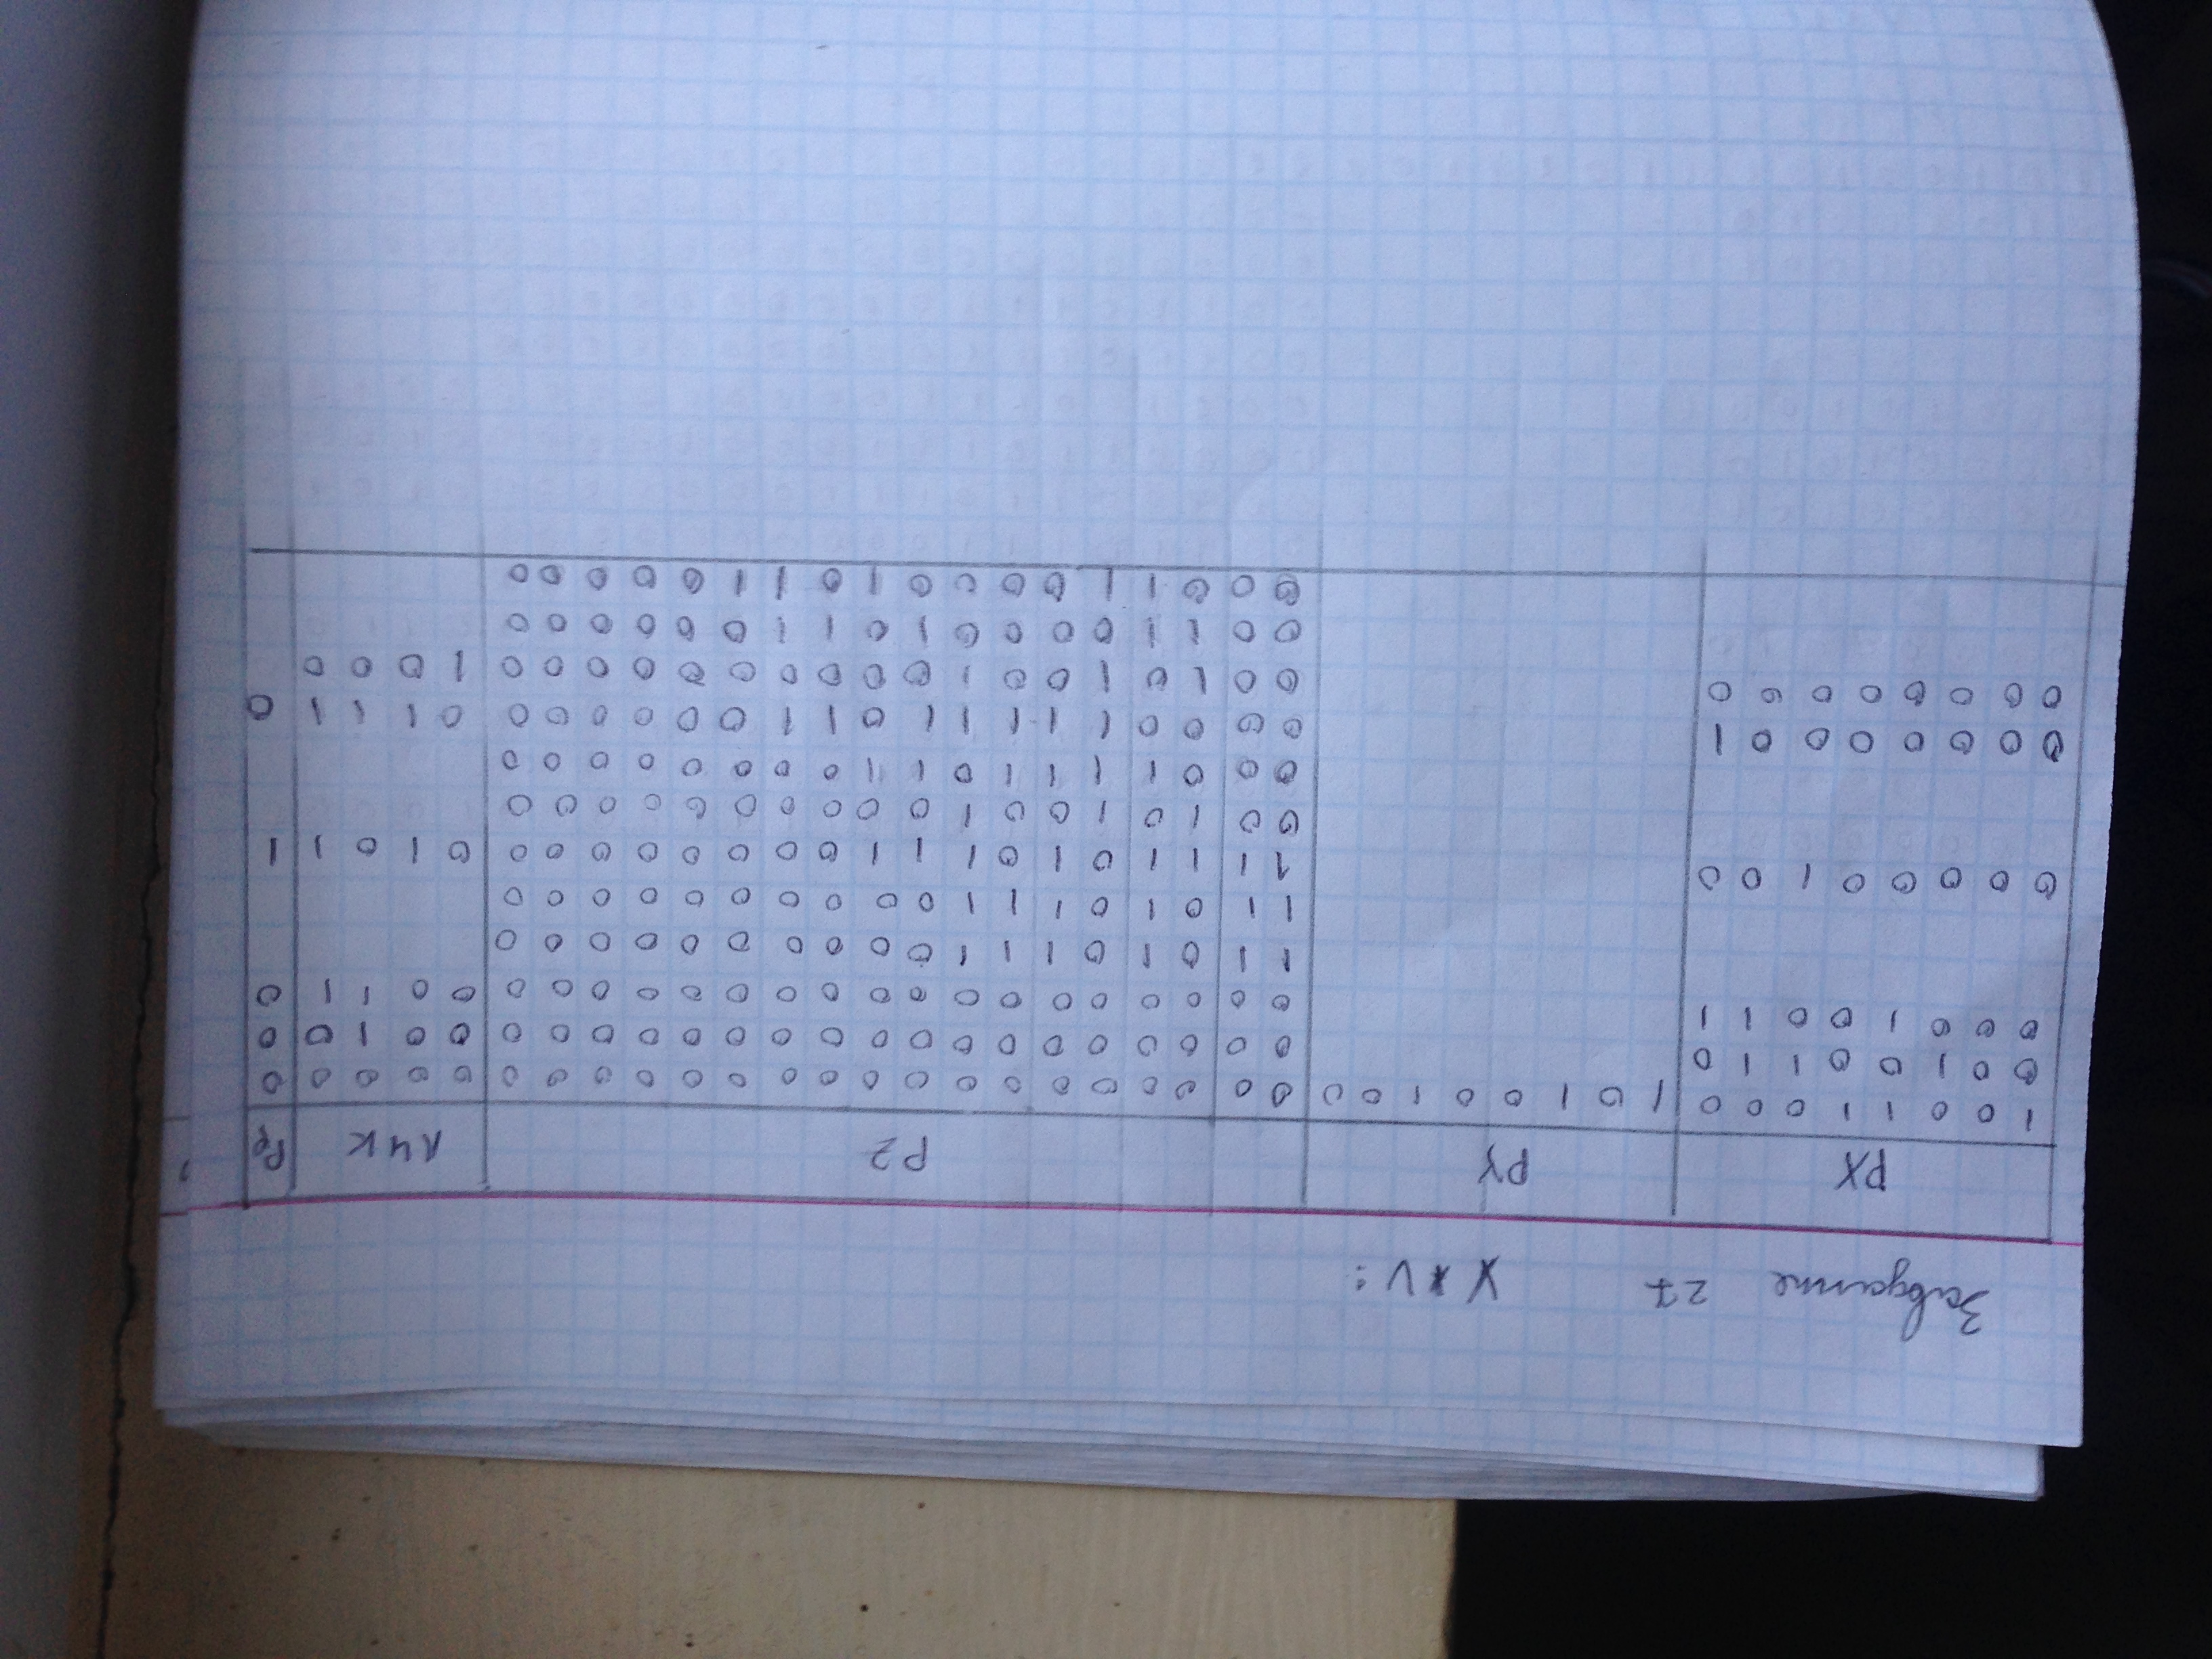 Завдання 27 X*V:
РХ РY PZ ЛЧК Рр
1 0 0 1 1 0 0 0 1 0 1 0 0 1 0 0 0 0 0 0 0 0 0 0 0 0 0 0 0 0 0 0 0 0 0 0 0 0 0
0 0 1 0 0 1 1 0 0 0 0 0 0 0 0 0 0 0 0 0 0 0 0 0 0 0 0 0 1 0 0
0 0 0 1 0 0 1 1 0 0 0 0 0 0 0 0 0 0 0 0 0 0 0 0 0 0 0 0 1 1 0
1 1 0 1 0 1 1 1 0 0 0 0 0 0 0 0 0 0
1 1 0 1 0 1 1 1 0 0 0 0 0 0 0 0 0 0
0 0 0 0 0 1 0 0 1 1 1 1 0 1 0 1 1 1 0 0 0 0 0 0 0 0 0 1 0 1 1
0 0 1 0 1 0 0 1 0 0 0 0 0 0 0 0 0 0
0 0 0 1 1 1 1 0 1 1 0 0 0 0 0 0 0 0
0 0 0 0 0 0 0 1 0 0 0 0 1 1 1 1 1 0 1 1 0 0 0 0 0 0 0 1 1 1 0
0 0 0 0 0 0 0 0 0 0 1 0 1 0 0 1 0 0 0 0 0 0 0 0 0 0 1 0 0 0
0 0 1 1 0 0 0 0 1 0 1 1 0 0 0 0 0 0
0 0 0 1 1 0 0 0 0 1 0 1 1 0 0 0 0 0